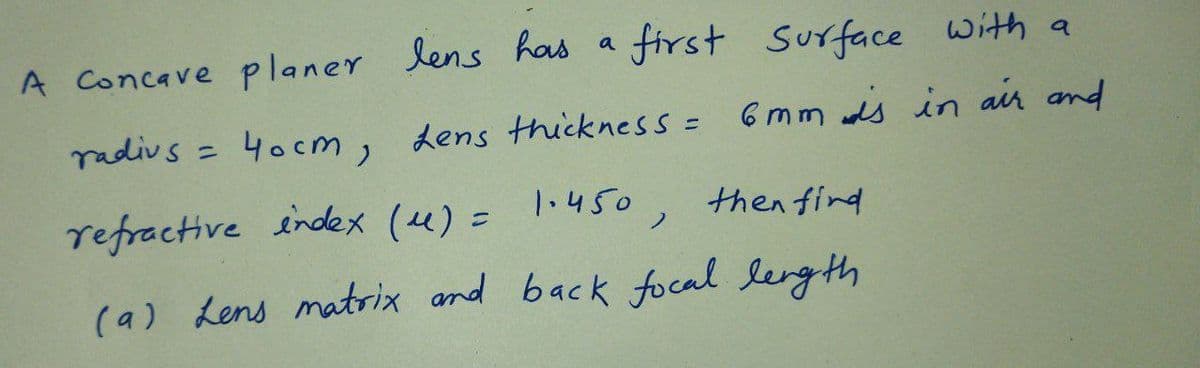 A Concave planer lens has a first surface with a
radius = 40cm, Lens thickness = 6mm is in air and
refractive index (μ) = 1.450, then find
(a) Lens matrix and back focal length